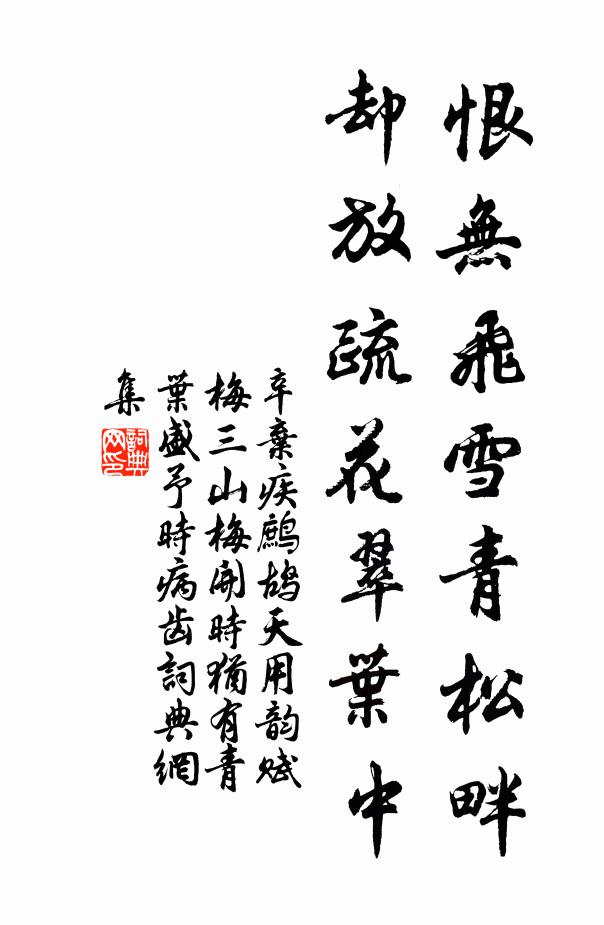 恨無飛雪青松畔
却放疏花翠葉中
辛棄疾鷓鴣天用韵赋
梅三山梅開時猶有青
葉盛予時病齿詞典網
集
詞典
网印